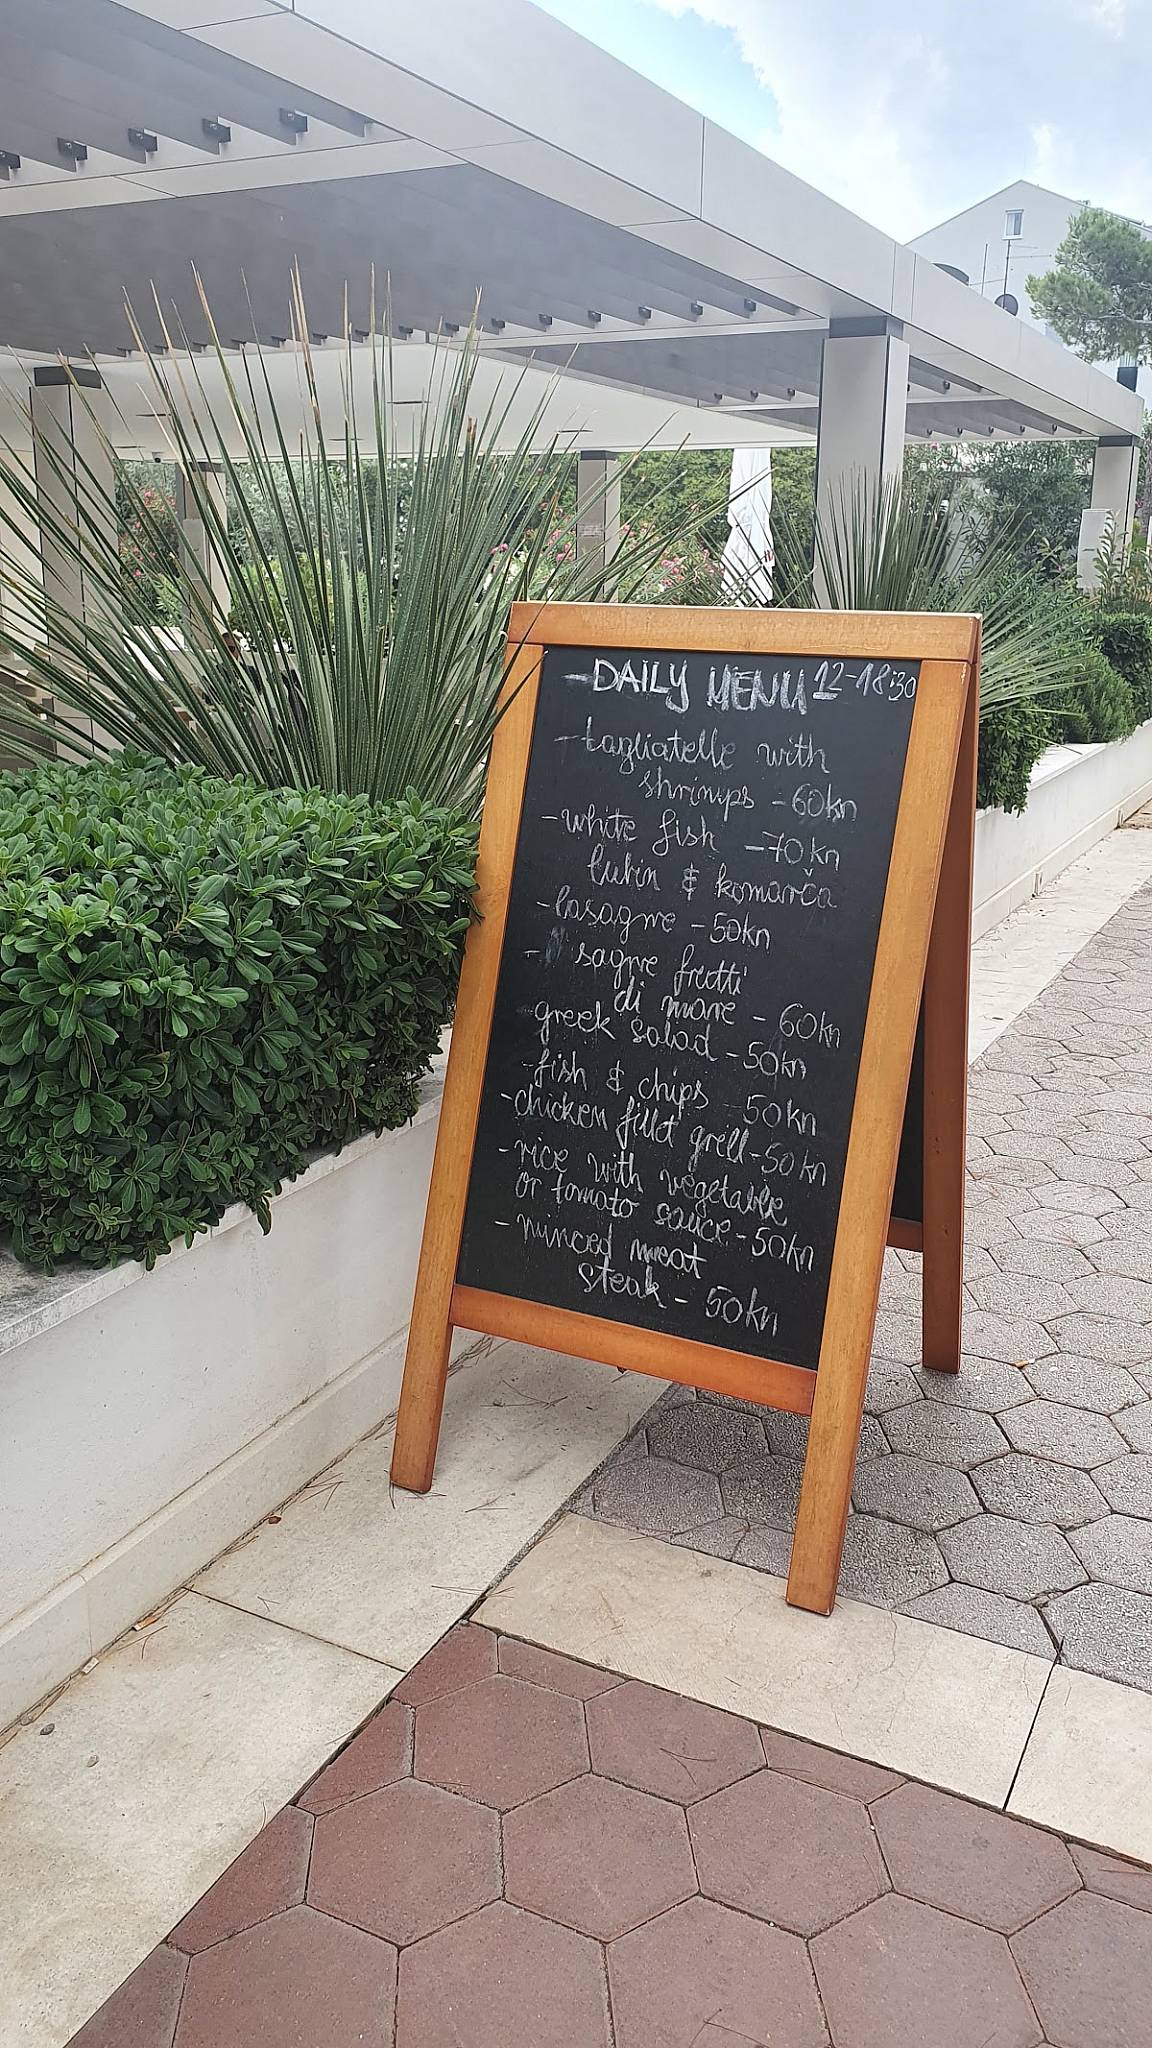 -DAILY MENU 12-18:30
-tagliatelle with
shrimps -60kn
-white fish -70kn
lubin & komarča
-lasagne -50kn
- sagne frutti
di mare - 60kn
-greek salad -50kn
-fish & chips -50kn
-chicken fillet grill-50kn
-rice with vegetable
or tomato sauce-50kn
-minced meat
steak - 50kn